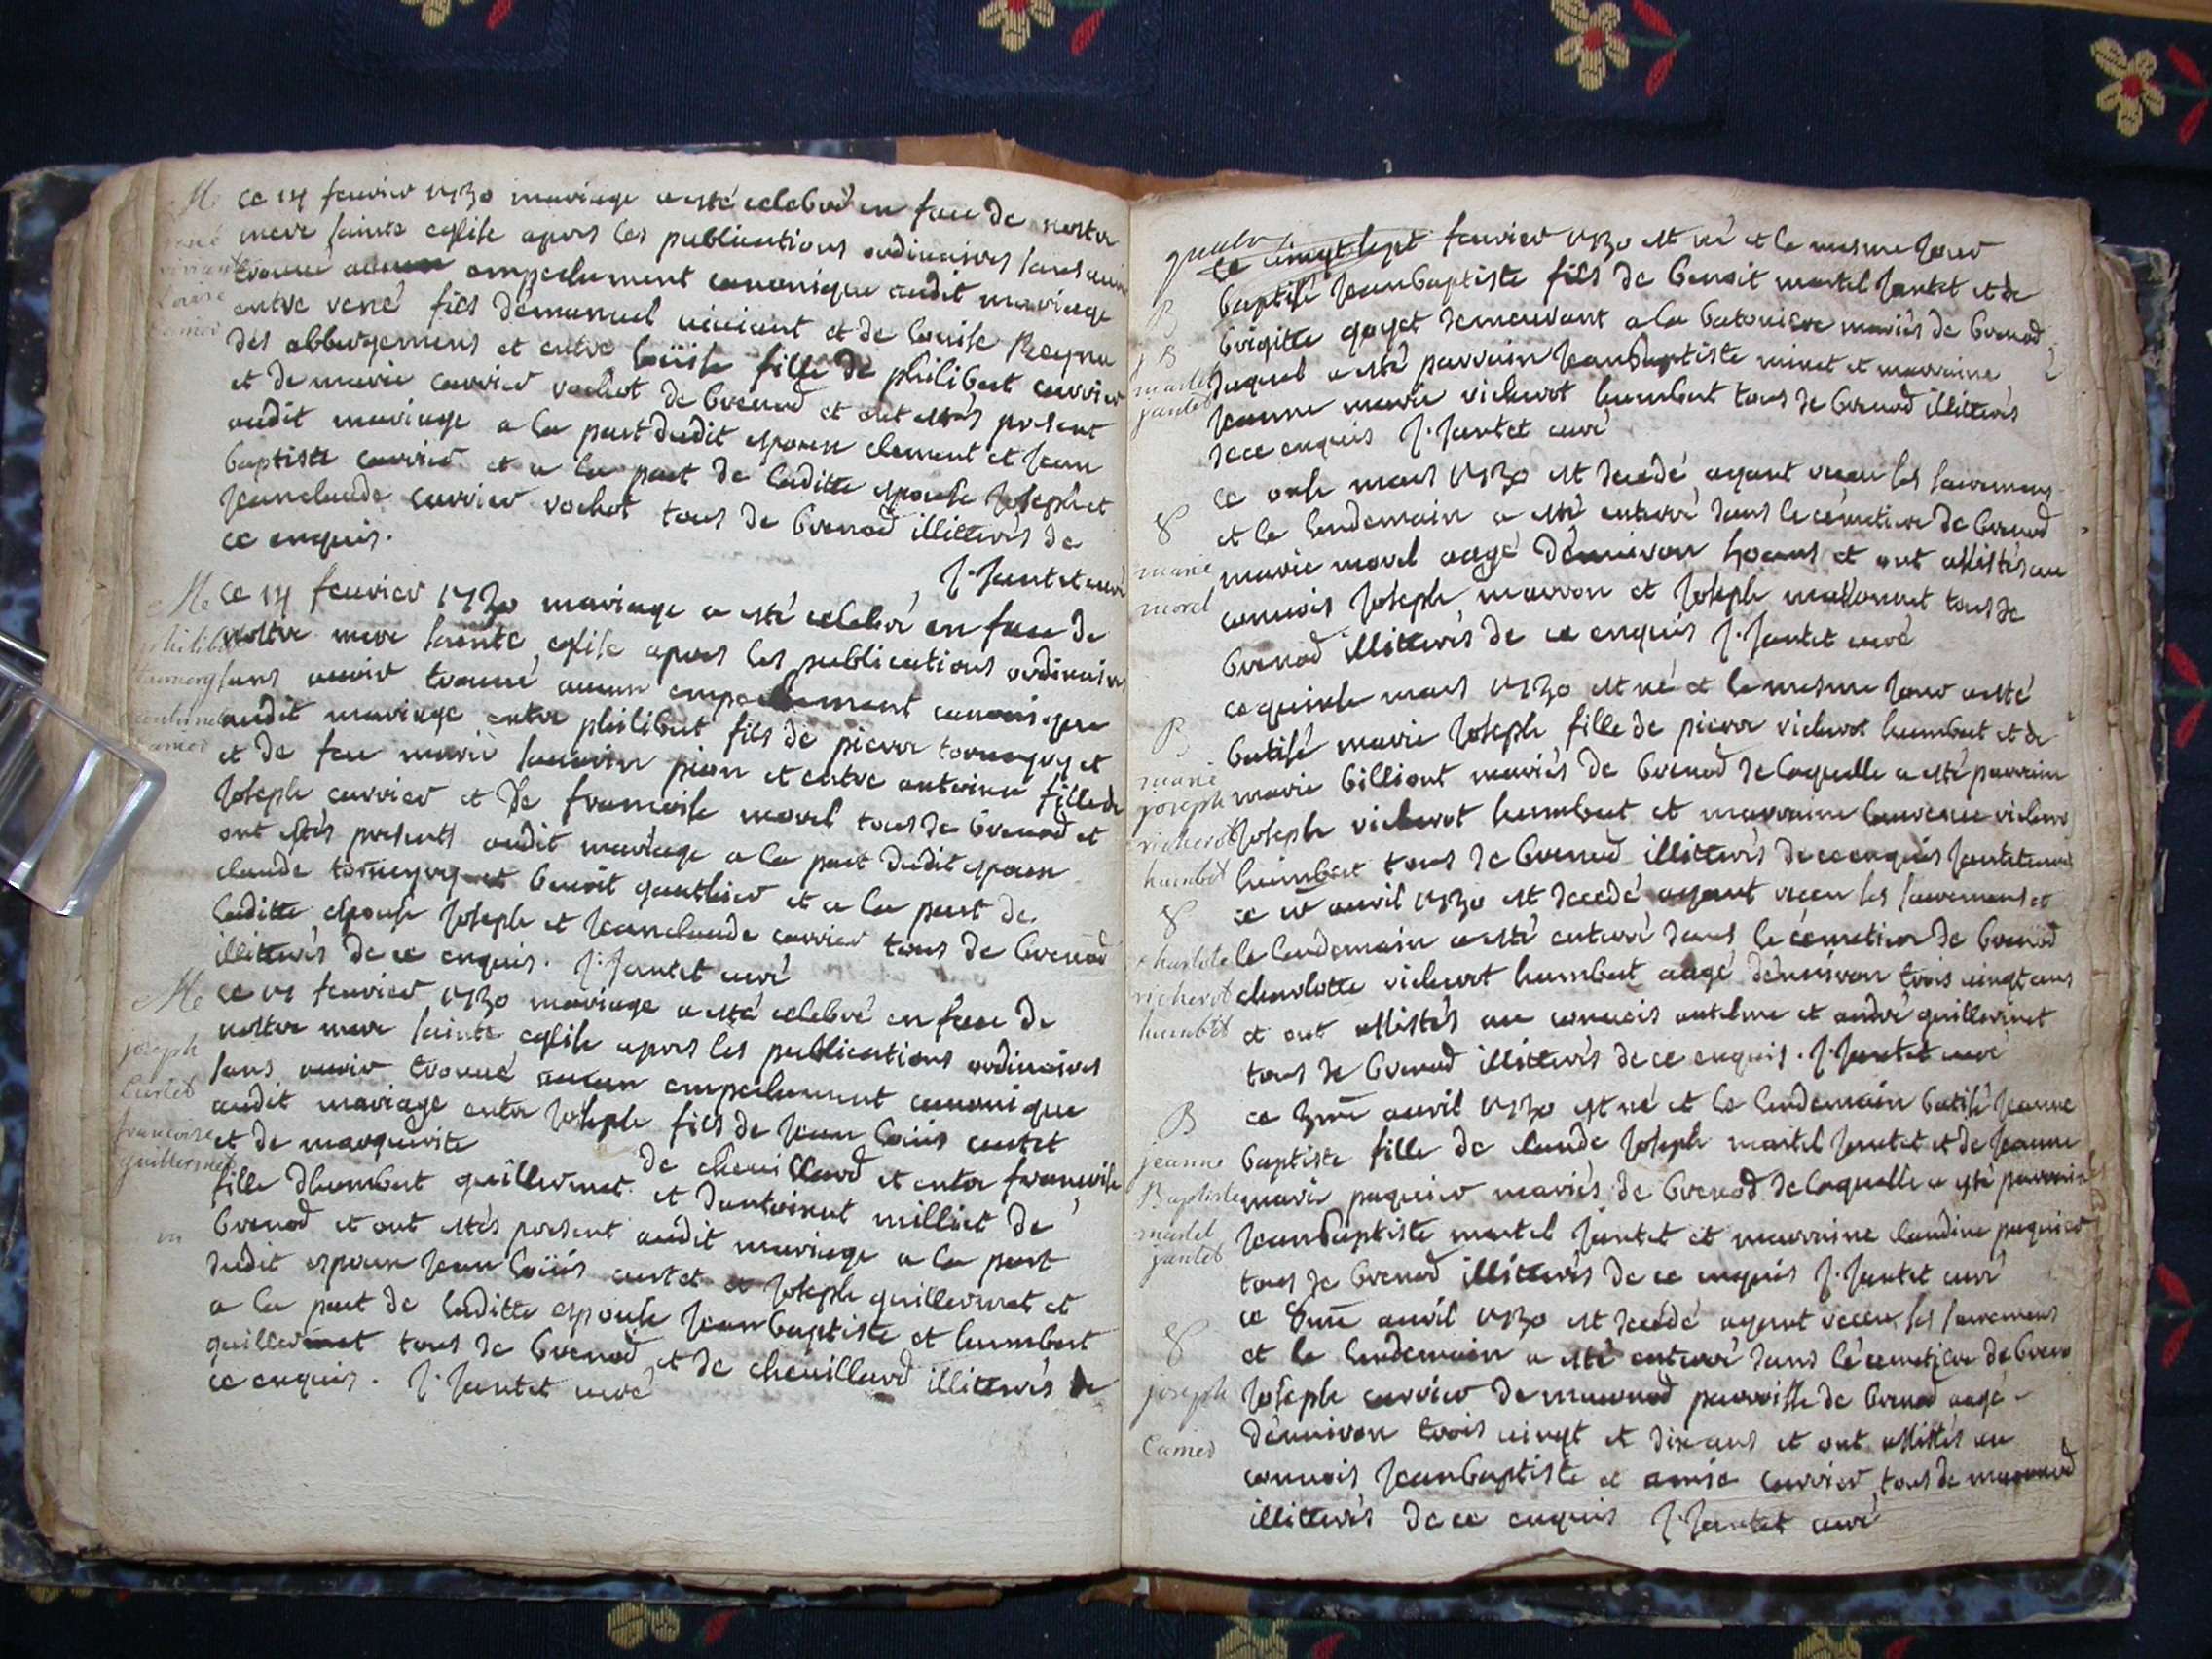 M
ce 14 feurier 1730 mariage a esté celebré en face de nostre
mere sainte eglise apres les publications ordinaires sans auoir
trouué aucun empeschement canonique audit mariage
entre rené fils demanuel uiuiant et de louise Reyne
des abbergemens et entre loüise fille de philibert carrier
et de marie carrier rochot de brenod et ont estés present
audit mariage a la part dudit epoux clement et jean
baptiste carrier et a la part de laditte epouse joseph et
jeanclaude carrier rochot tous de brenod illitterés de
ce enquis.
J. Jantet curé
M
ce 14 feurier 1730 mariage a esté celebré en face de
nostre mere sainte eglise apres les publications ordinaires
sans auoir trouué aucun empeschement canonique
audit mariage entre philibert fils de pierre et
et de feu marie pion et entre antoine fille de
joseph carrier et de francoise morel tous de brenod et
ont estés presents audit mariage a la part dudit epoux
claude et benoit gauthier et a la part de
laditte epouse joseph et jeanclaude carrier tous de brenod
illitterés de ce enquis. J. Jantet curé
M
joseph
francoise
guillermet
ce feurier 1730 mariage a esté celebré en face de
nostre mere sainte eglise apres les publications ordinaires
sans auoir trouué aucun empeschement canonique
audit mariage entre joseph fils de jean loüis
et de marguerite de cheuillard et entre francoise
fille dhumbert guillermet et dantoinet milliet de
brenod et ont estés present audit mariage a la part
dudit espoux jean loüis et joseph guillermet et
a la part de laditte espouse jean baptiste et humbert
guillermet tous de brenod et de cheuillard illitterés de
ce enquis. J. Jantet curé
ce uingt sept feurier 1730 est né et le mesme jour
baptisé jeanbaptiste fils de benoit martel jantet et de
brigitte goyet demeurant a la batoniere mariés de brenod
duquel a esté parrain jeanbaptiste minet et marraine
jeanne marie richerot humbert tous de brenod illitterés
de ce enquis J. Jantet curé
B
j B
martel
jantet
ce onse mars 1730 est decedé ayant receu les sacremens
et le lendemain a esté enterré dans le cémetiere de brenod
marie morel aagé dénuiron ans et ont assistés au
conuois joseph marron et joseph tous de
brenod illitterés de ce enquis J. Jantet curé
marie
morel
ce quinse mars 1730 est né et le mesme jour a esté
batisé marie joseph fille de pierre richerot humbert et de
marie billiont mariés de brenod de laquelle a esté parrain
joseph richerot humbert et marraine laurence richerot
humbert tous de brenod illitterés de ce enquis jantet curé
B
marie
joseph
richerot
humbert
ce auril 1730 est decedé ayant receu les sacremens et
le lendemain a esté enterré dans le cémetiere de brenod
charlotte richerot humbert aagé dénuiron trois uingt ans
et ont assistés au conuois antelme et andré guillermet
tous de brenod illitterés de ce enquis. J. Jantet curé
charlote
richerot
humbert
ce 3me auril 1730 est né et le lendemain batisé jeanne
baptiste fille de claude joseph martel jantet et de jeanne
marie paquier mariés de brenod de laquelle a esté parrain
jeanbaptiste martel jantet et marraine claudine paquier
tous de brenod illitterés de ce enquis J. Jantet curé
B
jeanne
Baptiste
martel
jantet
ce auril 1730 est decedé ayant receu les sacremens
et le lendemain a esté enterré dans le cemetiere de brenod
joseph carrier de macunod parroisse de brenod aagé
dénuiron trois uingt et dix ans et ont assistés au
conuois jeanbaptiste et carrier tous de macunod
illitterés de ce enquis J. Jantet curé
joseph
Carrier